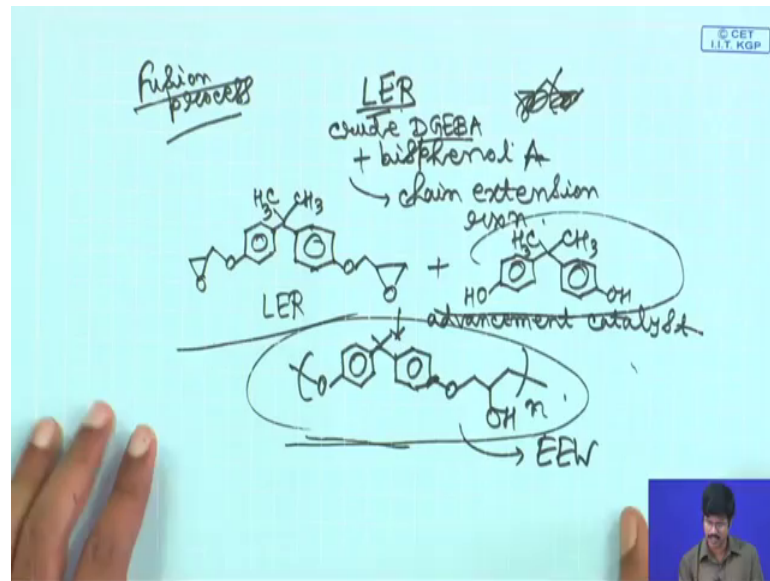 © CET
I.I.T. KGP
Fusion
process
LER
crude DGEBA
+ bisphenol A
→ chain extension
rxn.
H3C CH3
O O O O
LER
+
H3C CH3
HO OH
advancement catalyst
O O OH n
→ EEW